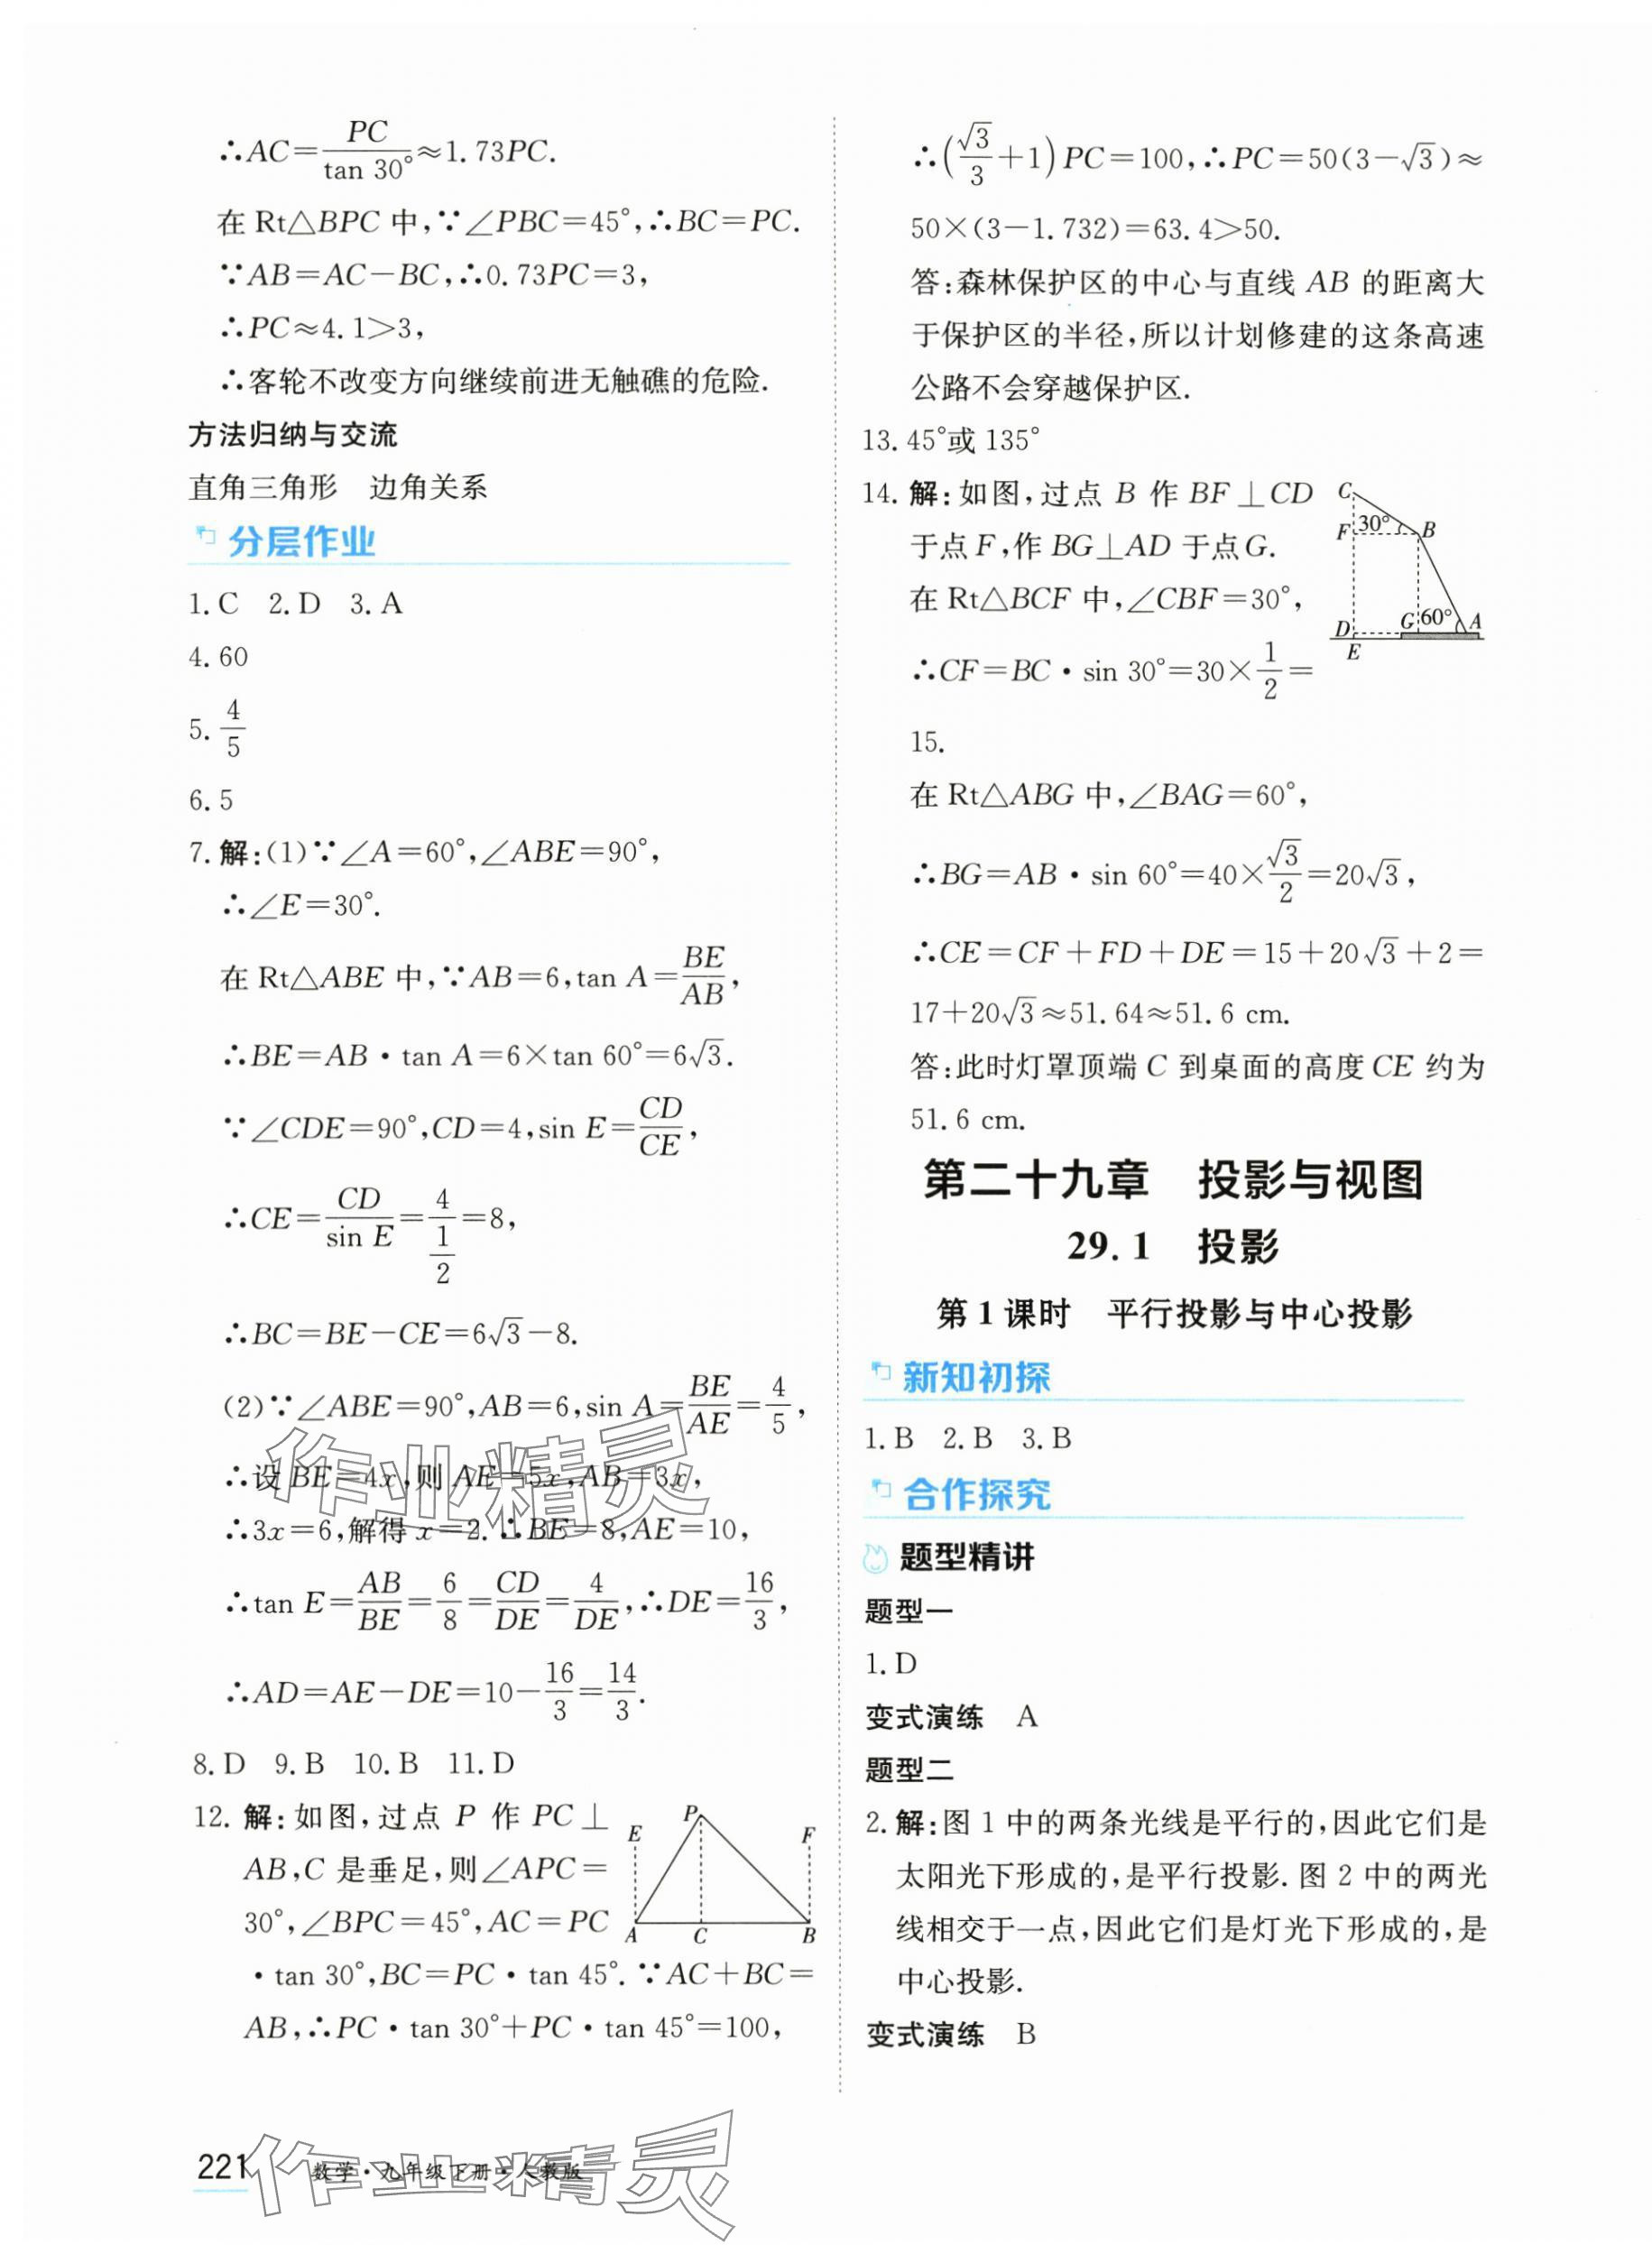 ∴AC=PC/tan 30°≈1.73PC.
在 Rt△BPC 中,∵∠PBC=45°,∴BC=PC.
∵AB=AC−BC,∴0.73PC=3,
∴PC≈4.1>3,
∴客轮不改变方向继续前进无触礁的危险.
方法归纳与交流
直角三角形 边角关系
分层作业
1.C 2.D 3.A
4.60
5.4/5
6.5
7.解:(1)∵∠A=60°,∠ABE=90°,
∴∠E=30°.
在 Rt△ABE 中,∵AB=6,tan A=BE/AB,
∴BE=AB·tan A=6×tan 60°=6√3.
∵∠CDE=90°,CD=4,sin E=CD/CE,
∴CE=CD/sin E=4/(1/2)=8,
∴BC=BE−CE=6√3−8.
(2)∵∠ABE=90°,AB=6,sin A=BE/AE=4/5,
∴设 BE=4x,则 AE=5x,AB=3x,
∴3x=6,解得 x=2.∴BE=8,AE=10,
∴tan E=AB/BE=6/8=CD/DE=4/DE,∴DE=16/3,
∴AD=AE−DE=10−16/3=14/3.
8.D 9.B 10.B 11.D
12.解:如图,过点 P 作 PC⊥
AB,C 是垂足,则∠APC=
30°,∠BPC=45°,AC=PC
·tan 30°,BC=PC·tan 45°.∵AC+BC=
AB,∴PC·tan 30°+PC·tan 45°=100,
E P F
A C B
∴(√3/3+1)PC=100,∴PC=50(3−√3)≈
50×(3−1.732)=63.4>50.
答:森林保护区的中心与直线 AB 的距离大
于保护区的半径,所以计划修建的这条高速
公路不会穿越保护区.
13.45°或 135°
14.解:如图,过点 B 作 BF⊥CD
于点 F,作 BG⊥AD 于点 G.
在 Rt△BCF 中,∠CBF=30°,
∴CF=BC·sin 30°=30×1/2=
15.
C
F 30° B
D G 60° A
E
在 Rt△ABG 中,∠BAG=60°,
∴BG=AB·sin 60°=40×√3/2=20√3,
∴CE=CF+FD+DE=15+20√3+2=
17+20√3≈51.64≈51.6 cm.
答:此时灯罩顶端 C 到桌面的高度 CE 约为
51.6 cm.
第二十九章 投影与视图
29.1 投影
第 1 课时 平行投影与中心投影
新知初探
1.B 2.B 3.B
合作探究
题型精讲
题型一
1.D
变式演练 A
题型二
2.解:图 1 中的两条光线是平行的,因此它们是
太阳光下形成的,是平行投影.图 2 中的两光
线相交于一点,因此它们是灯光下形成的,是
中心投影.
变式演练 B
作业精灵
221 数学·九年级下册·人教版
作业精灵